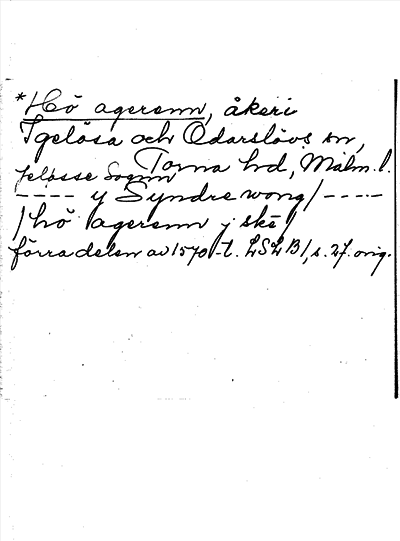 *Hö agerenn, åkeri
Igelösa och Odarslövs sn,
Torna hd, Malm. l.
Jelösse Sognn
---- y Syndre wong/-----
/hö agerenn j skě/
förra delen av 1570-t. LSLB1, s. 27. orig.